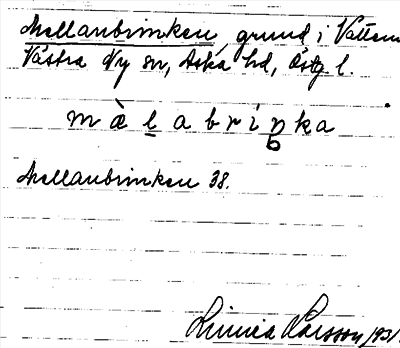 Mellanbrinken, grund i Vättern
Västra Ny sn, Aska hd, Östg. l.
mæ̀l̠abriŋka
Mellanbrinken 38.
Linnéa Larsson 1931.